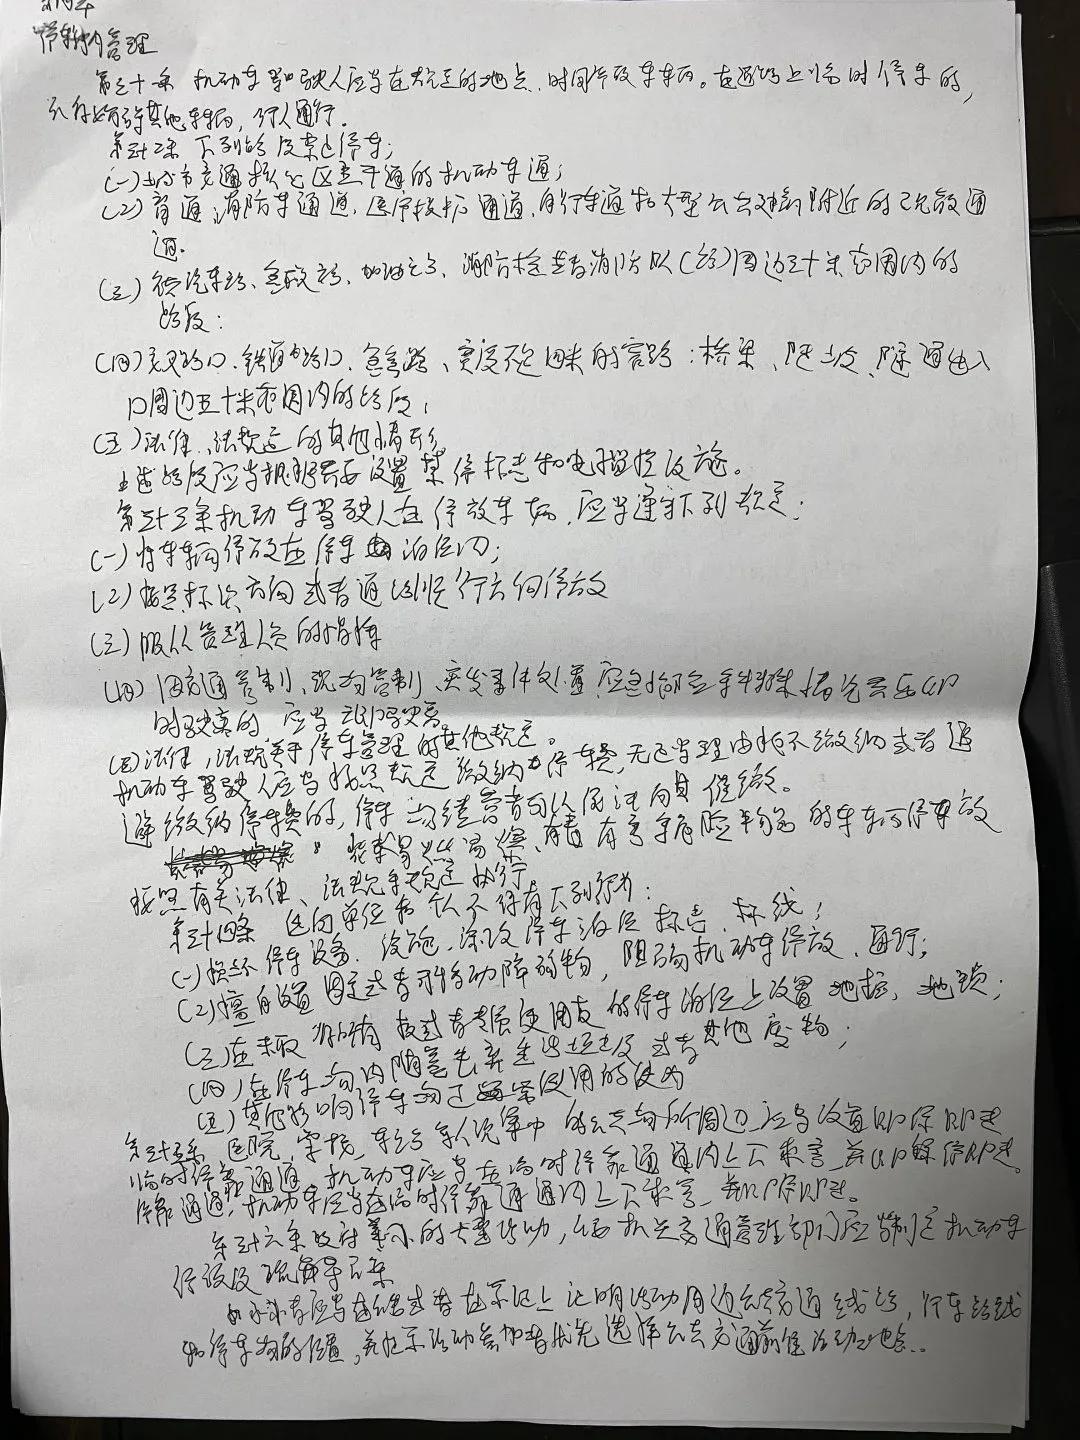 停车场管理
第三十一条 机动车驾驶人应当在规定的地点、时间停放车辆。在道路上临时停车的,
不得妨碍其他车辆,行人通行.
第三十二条 下列路段禁止停车;
(一)城市交通核心区主干道的机动车道;
(2)盲道,消防车通道,医疗救护通道,自行车道和大型公共建筑附近的疏散通
道.
(三)公共汽车站、急救站、加油站、消防栓或者消防队(站)周边三十米范围内的
路段:
(四)交叉路口、铁道路口、急弯路、宽度不足四米的窄路:桥梁、陡坡、隧道出入
口周边五十米范围内的路段;
(五)法律、法规定的其他情形
上述路段应当根据需要设置禁停标志和电子监控设施。
第三十三条机动车驾驶人在停放车场,应当遵守下列规定;
(一)将车辆停放在停车泊位内;
(2)按照标识方向或者通道顺行方向停放
(三)服从管理人员的指挥
(四)因交通管制、现场管制、突发事件处置、应急抢险等特殊情况需要即
时驶离的 应当立即驶离
(五)法律,法规关于停车管理的其他规定。
机动车驾驶人应当按照规定缴纳停车费,无正当理由拒不缴纳或者逃
避缴纳停车费的,停车场经营者可以依法向其催缴。
装载易燃易爆、有毒有害等危险物品的车辆停放
按照有关法律、法规等规定执行。
第三十四条 任何单位和个人不得有下列行为:
(一)损坏停车设备、设施,涂改停车泊位标志、标线;
(2)擅自设置固定或者可移动障碍物,阻碍机动车停放、通行;
(三)在未取得所有权或者专属使用权的停车泊位上设置地桩、地锁;
(四)在停车场内随意丢弃生活垃圾或者其他废物;
(五)其他影响停车场正常使用的行为
第三十五条 医院,学校,车站等人流集中的公共场所周边,应当设置即停即走
临时停靠通道,机动车应当在临时停靠通道内上下乘客,并即停即走。
停靠通道,机动车应当在临时停靠通道内上下乘客,并即停即走。
第三十六条政府举办的大型活动,公安机关交通管理部门应当制定机动车
停放及疏导方案
举办者应当在信或者在票证上注明活动周边公共交通线路,行车路线
和停车场的位置,并提示活动参加者优先选择公共交通前往活动地点..